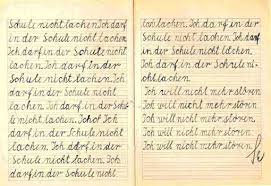 Schule nicht lachen. Ich darf
in der Schule nicht lachen.
Ich darf in der Schule nicht
lachen. Ich darf in der
Schule nicht lachen. Ich
darf in der Schule nicht
lachen. Ich darf in der Schu-
le nicht lachen. Ich darf
in der Schule nicht lachen.
Ich darf in der Schule nicht
lachen. Ich darf in der
Schule nicht lachen. Ich
darf in der Schule nicht
lachen. Ich darf in der Schule
nicht lachen. Ich darf in der
Schule nicht lachen. Ich darf
in der Schule nicht lachen.
Ich darf in der Schule ni-
cht lachen.
Ich will nicht mehr stören
Ich will nicht mehr stören.
Ich will nicht mehr stören.
Ich will nicht mehr stören
Ich will nicht mehr stören